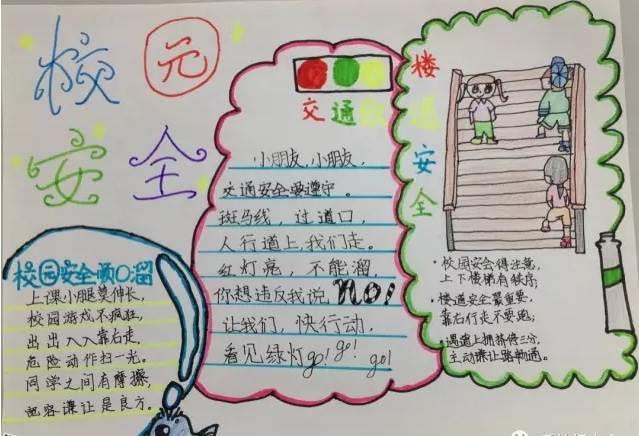 校园
安全
校园安全顺口溜
上课小腿莫伸长,
校园游戏不疯狂,
出出入入靠右走,
危险动作扫一光。
同学之间有摩擦,
包容谦让是良方。
交通
小朋友,小朋友,
交通安全要遵守。
斑马线,过道口,
人行道上,我们走。
红灯亮,不能溜,
你想违反我说 NO!
让我们,快行动,
看见绿灯go! go! go!
楼道安全
·校园安会得注意,
上下楼梯有秩序;
·楼道安全最重要,
靠右行走不要跑;
上拥挤停三分,
主动谦让路畅通。